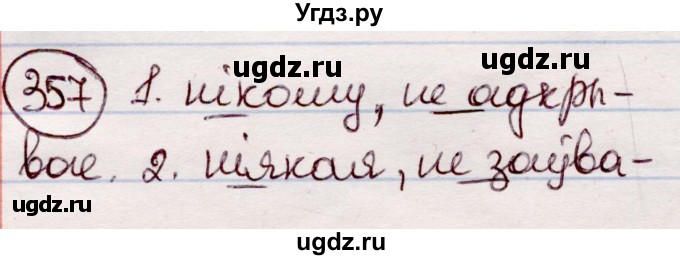 Угдз.ру
ugdz.ru ugdz.ru
357 1. нікому, не адкры-
вае. 2. ніякая, не заўва-
ugdz.ru ugdz.ru
ugdz.ru